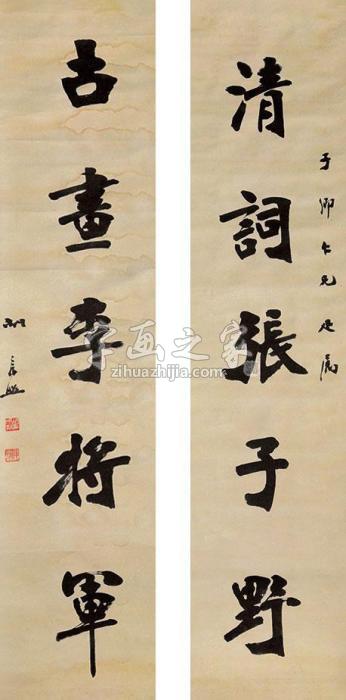 子卿仁兄 
清詞張子野
古畫李將軍
字画之家
zihuazhijia.com